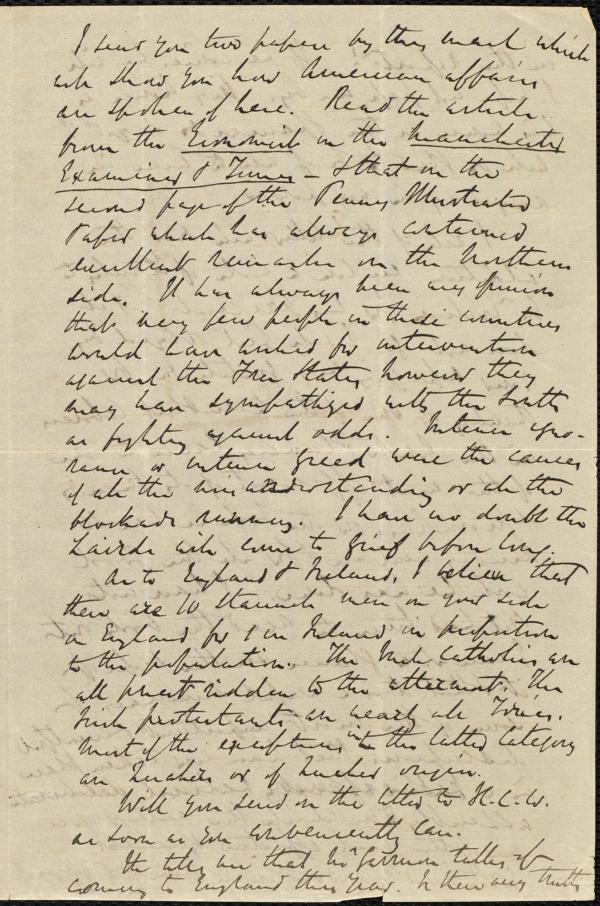 I send you two papers by this mail which
will show you how American affairs
are spoken of here. Read the article
from the Economist in the Manchester
Examiner & Times - & that on the
second page of the Penny Illustrated
Paper which has always contained
excellent remarks on the Northern
side. It has always been my opinion
that very few people in these countries
would have wished for intervention
against the Free States however they
may have sympathized with the South
as fighting against odds. Intense igno-
rance or intense greed were the causes
of all the misunderstanding or all the
blockade running. I have no doubt the
Lairds will come to grief before long.
As to England & Ireland, I believe that
there are 10 staunch men on your side
in England for 1 in Ireland in proportion
to the population. The Irish Catholics are
all priest ridden to the uttermost. The
Irish protestants are nearly all Tories.
Most of the exceptions in the latter category
are Quakers or of Quaker origin.
Will you send on the letter to H.C.W.
as soon as you conveniently can.
He tells me that Mr Garrison talks of
coming to England this year. Is there any truth